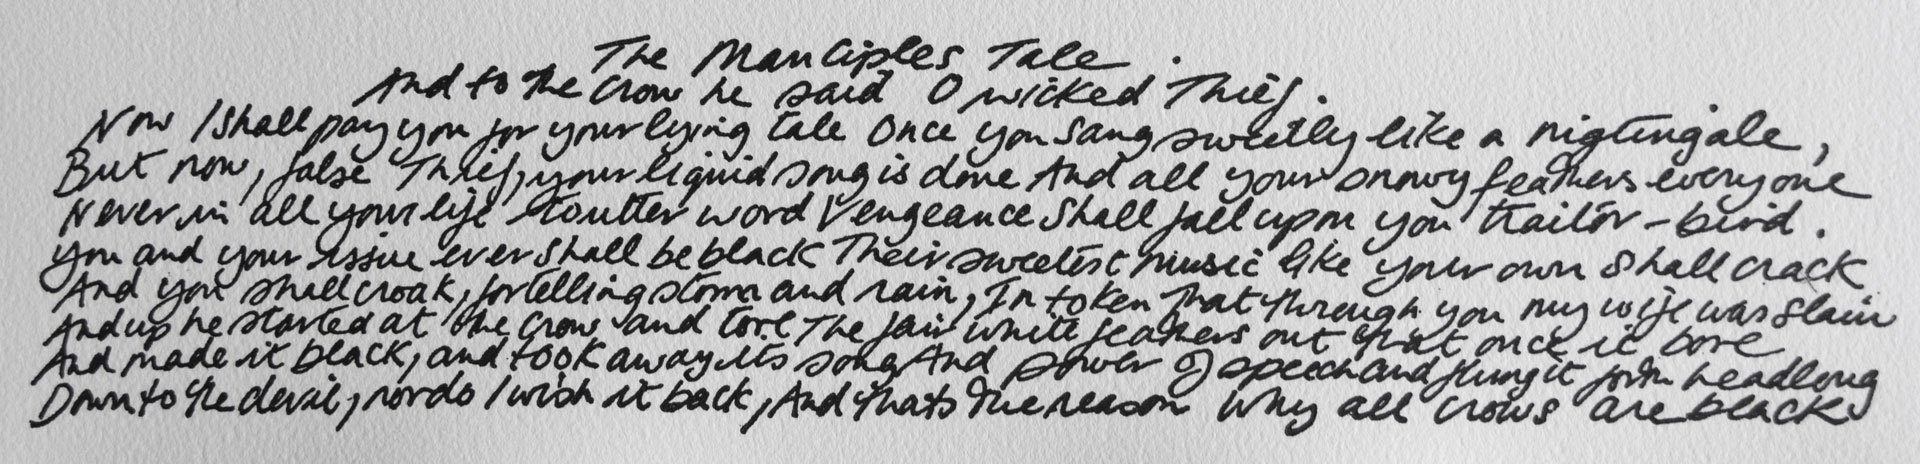 The Manciples Tale.
And to the Crow he said O wicked Thief.
Now I shall pay you for your lying tale Once you Sang sweetly like a nigtingale,
But now, false Thief, your liquid song is done And all your snowy feathers everyone
Never in all your life to utter word Vengeance Shall fall upon you traitor-bird.
You and your issue ever shall be black Their sweetest music like your own Shall crack
And you shall croak, fortelling storm and rain, In token That through you my wife was slain
And up he started at the Crow and tore The fair white feathers out that once it bore
And made it black, and took away its song And power of speech and flung it forth headlong
Down to the devil, nor do I wish it back, And thats the reason Why all crows are black